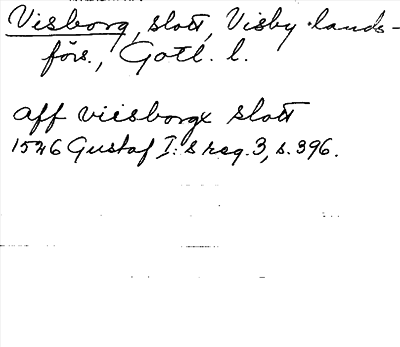 Visborg, slott, Visby lands-
förs., Gotl. l.
aff viisborgx slott
1546 Gustaf I:s reg. 3, s. 396.